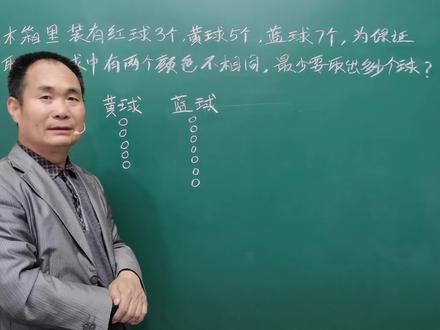 木箱里装有红球3个,黄球5个,蓝球7个,为保证
取 球中有两个颜色不相同,最少要取出多少个球?
黄球 蓝球